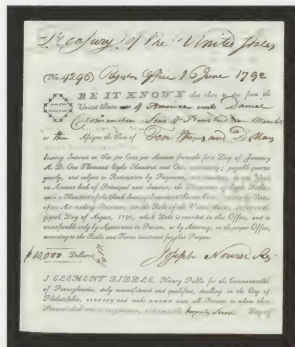 Treasury of the United States
(No 4296) Register Office 16 June 1792
BE IT KNOWN that there is due from the
United States of America unto Daniel
Crommelin Sons of Amsterdam
or their Assigns the Sum of Ten thousand Dollars
bearing Interest at Six per Cent per Annum from the first Day of January
A. D. One Thousand Eight Hundred and One, payable quarter
yearly, and subject to Redemption by Payments, not exceeding, in one Year,
on Account both of Principal and Interest, the Proportion of Eight Dollars
upon a Hundred of the Stock bearing Interest
An Act making Provision for the Debt of the United States,
fourth Day of August, 1790, which Debt is recorded in this Office, and is
transferable only by Appearance in Person, or by Attorney, at the proper Office,
according to the Rules and Forms instituted for that Purpose.
$10,000 Dollars Joseph Nourse Reg
I CLEMENT BIDDLE, Notary Public for the Commonwealth
of Pennsylvania, duly commissioned and qualified, dwelling in the City of
Philadelphia, CERTIFY and make KNOWN unto all Persons to whom these